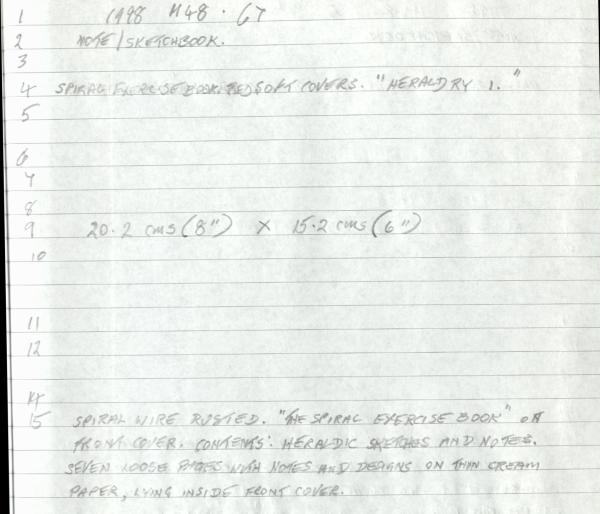 1 1998 M48.67
2 NOTE/SKETCHBOOK.
3
4 SPIRAL EXERCISE BOOK. RED SOFT COVERS. "HERALDRY 1."
5
6
7
8
9 20.2 cms (8") X 15.2 cms (6")
10
11
12
14
15 SPIRAL WIRE RUSTED. "THE SPIRAL EXERCISE BOOK" ON
FRONT COVER. CONTENTS: HERALDIC SKETCHES AND NOTES.
SEVEN LOOSE PAGES WITH NOTES AND DESIGNS ON THIN CREAM
PAPER, LYING INSIDE FRONT COVER.